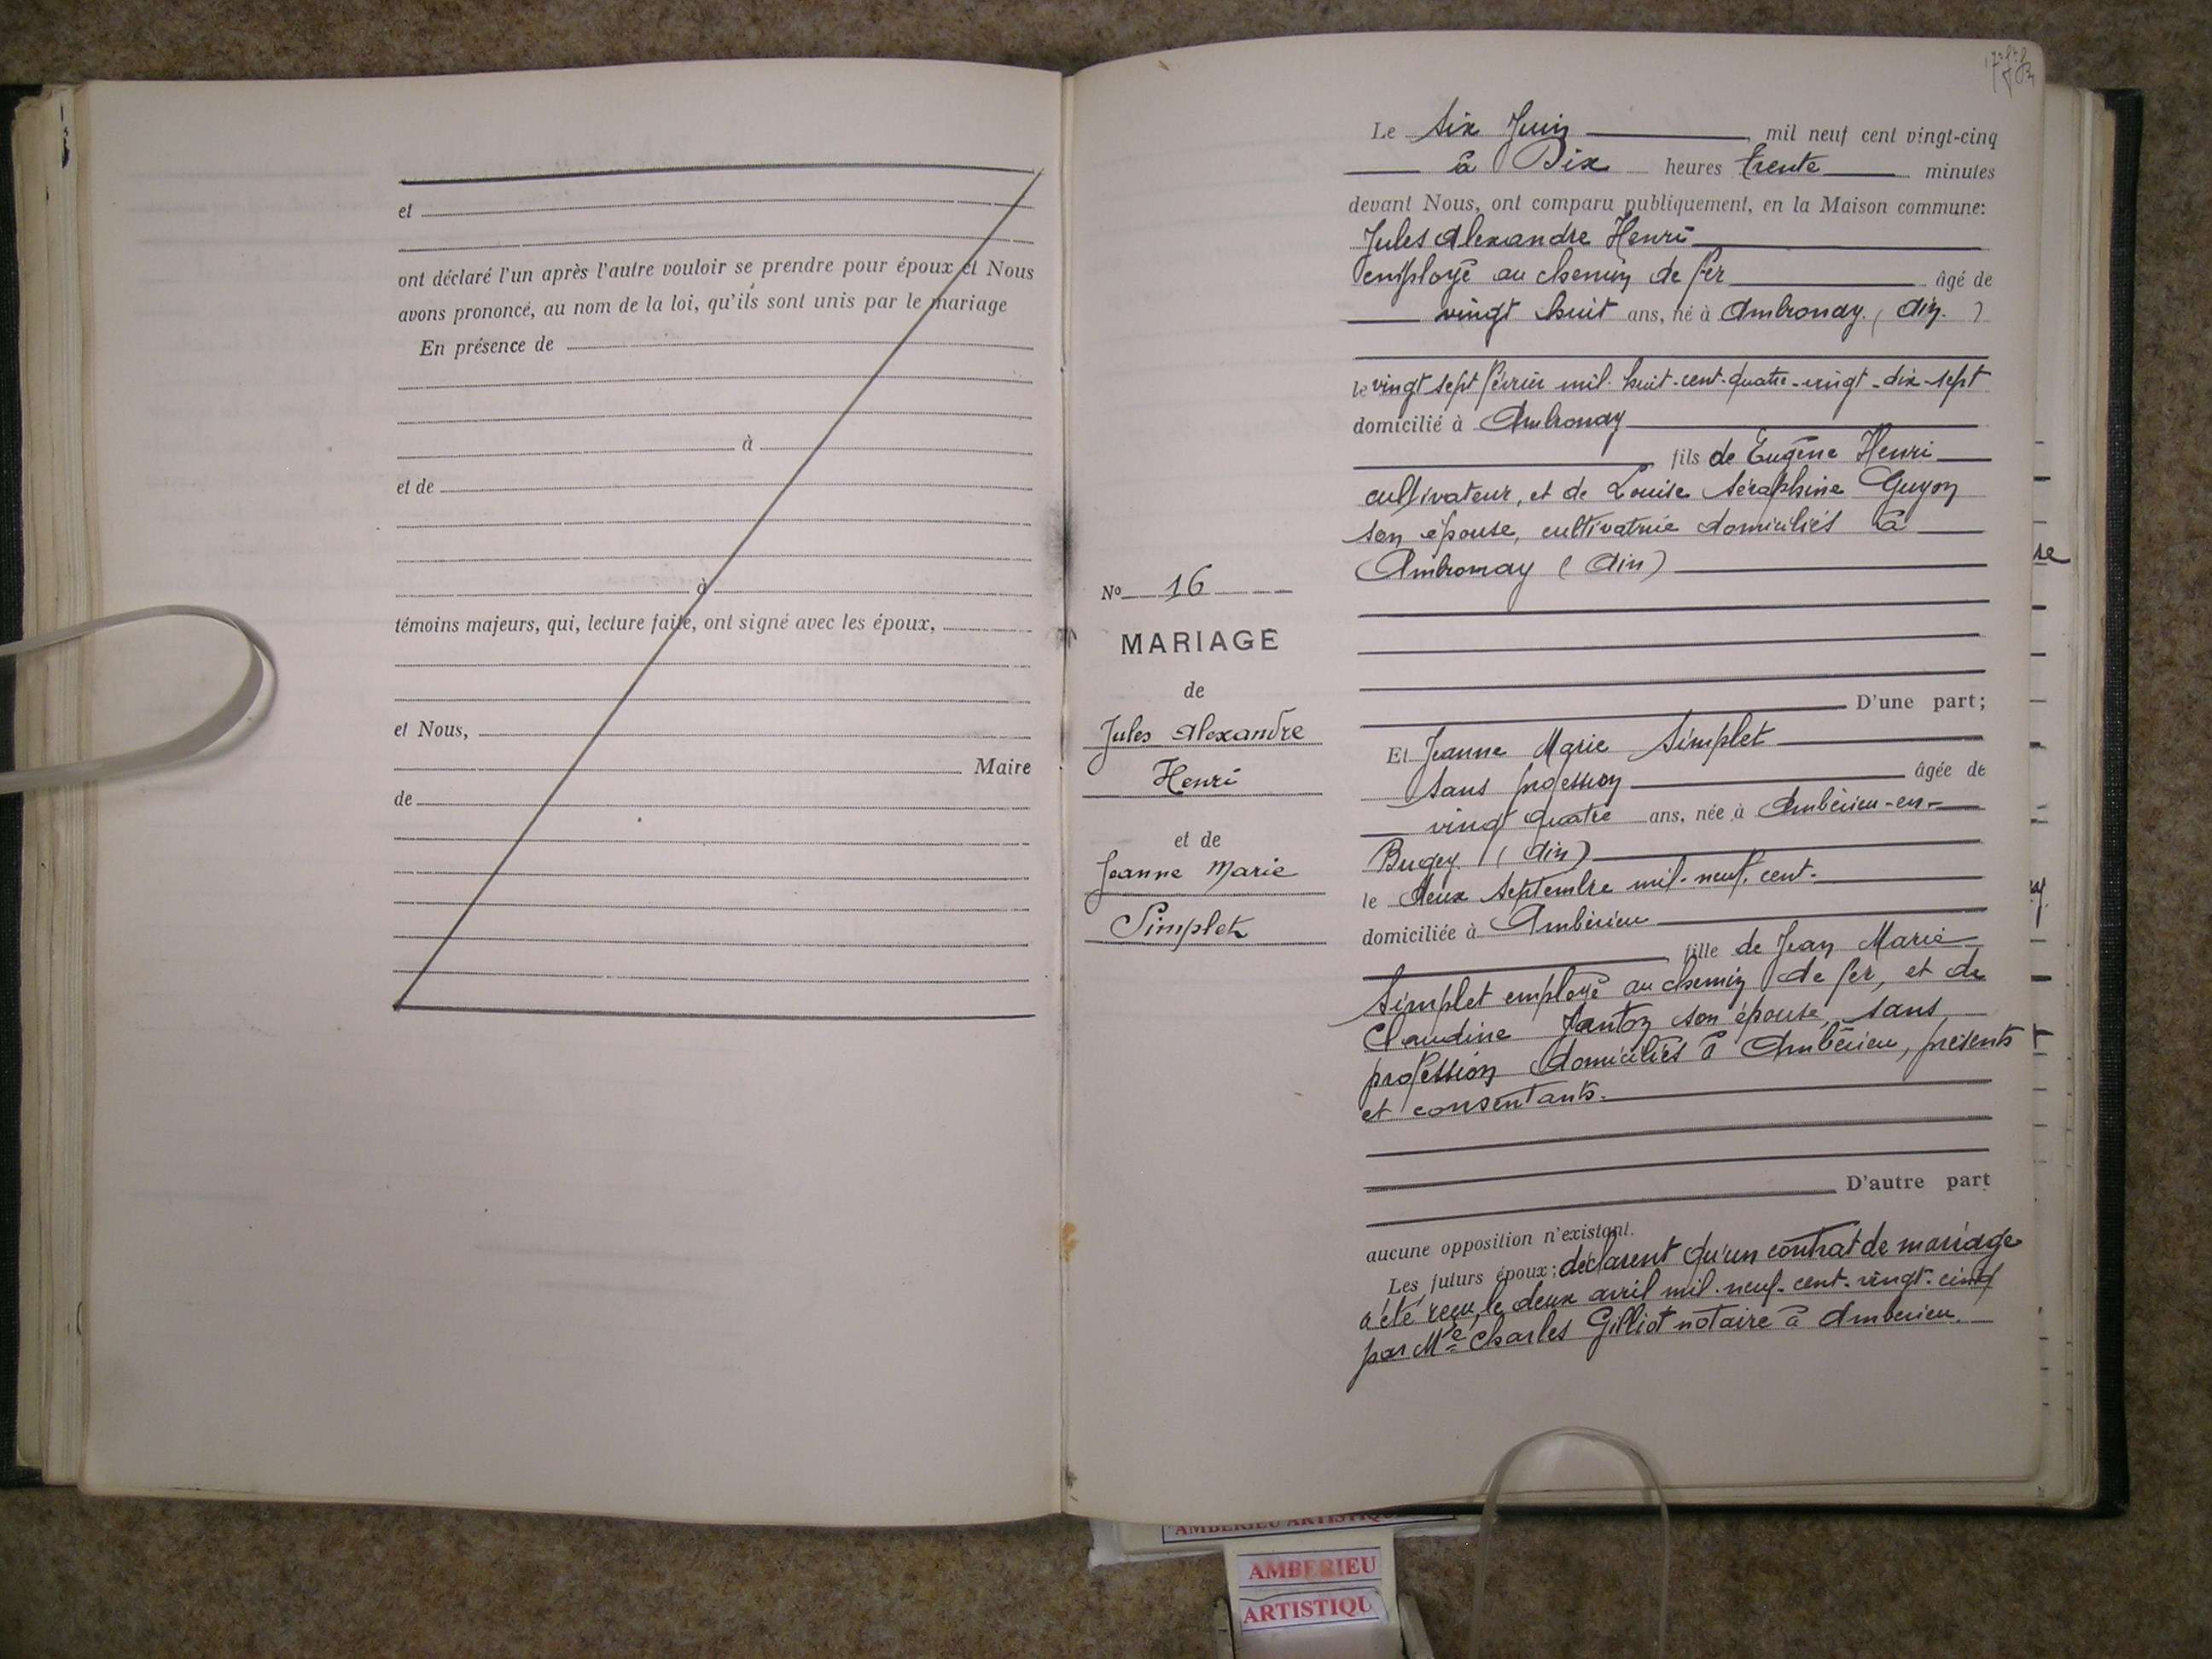 et
ont déclaré l'un après l'autre vouloir se prendre pour époux et Nous
avons prononcé, au nom de la loi, qu'ils sont unis par le mariage
En présence de
à
et de
à
témoins majeurs, qui, lecture faite, ont signé avec les époux,
et Nous,
Maire
de
No 16
MARIAGE
de
Jules Alexandre
Henri
et de
Jeanne Marie
Simplet
Le six Juin mil neuf cent vingt-cinq
à Dix heures trente minutes
devant Nous, ont comparu publiquement, en la Maison commune:
Jules Alexandre Henri
employé au chemin de fer âgé de
vingt huit ans, né à Ambronay. (Ain. )
le vingt sept février mil-huit-cent-quatre-vingt-dix-sept
domicilié à Ambronay
fils de Eugène Henri
cultivateur, et de Louise Séraphine Guyon
son épouse, cultivatrice domiciliés à
Ambronay (Ain)
D'une part;
Et Jeanne Marie Simplet
sans profession âgée de
vingt quatre ans, née à Ambérieu-en-
Bugey (Ain)
le deux septembre mil-neuf-cent-
domiciliée à Ambérieu
fille de Jean Marie
Simplet employé au chemin de fer, et de
Claudine Janton son épouse, sans
profession domiciliés à Ambérieu, présents
et consentants.
D'autre part
aucune opposition n'existant.
Les futurs époux; déclarent qu'un contrat de mariage
a été reçu, le deux avril mil-neuf-cent-vingt-cinq
par Me Charles Gilliot notaire à Amberieu.
AMBERIEU ARTISTIQU
AMBERIEU
ARTISTIQU